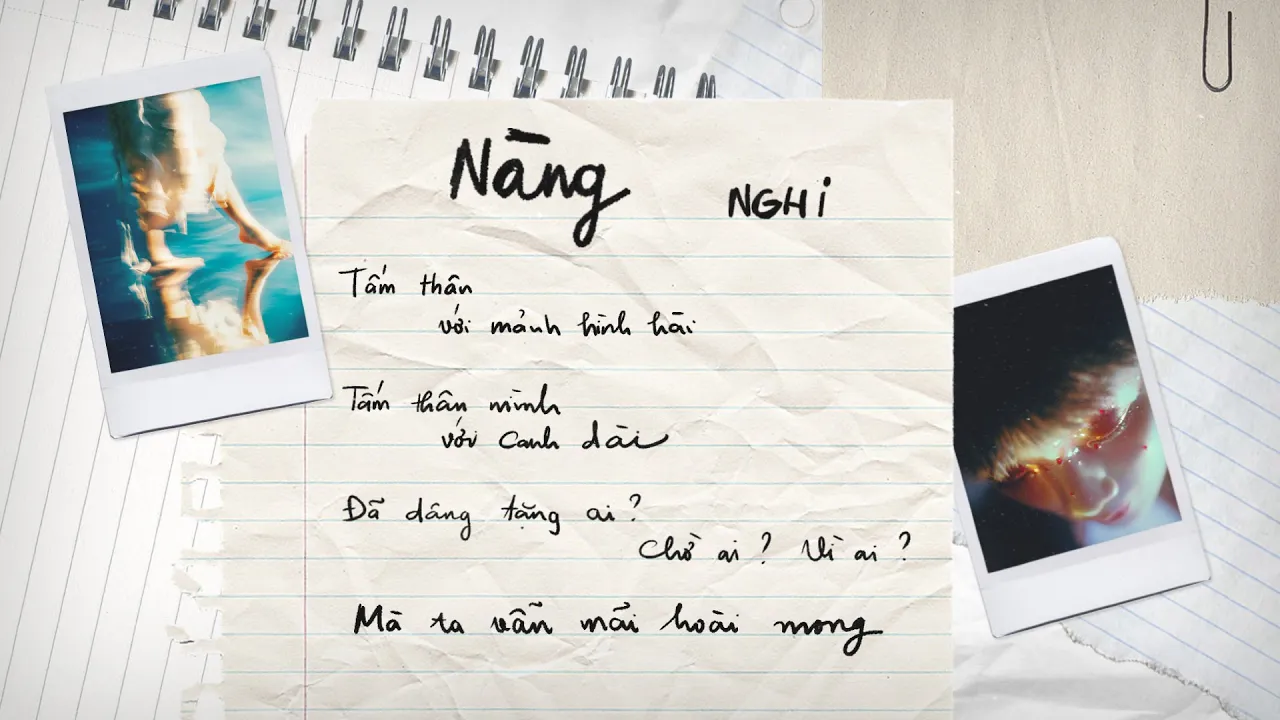 Nàng
NGHI
Tấm thân
với mảnh hình hài
Tấm thân mình
với canh dài
Đã dâng tặng ai?
Chờ ai? Vì ai?
Mà ta vẫn mãi hoài mong